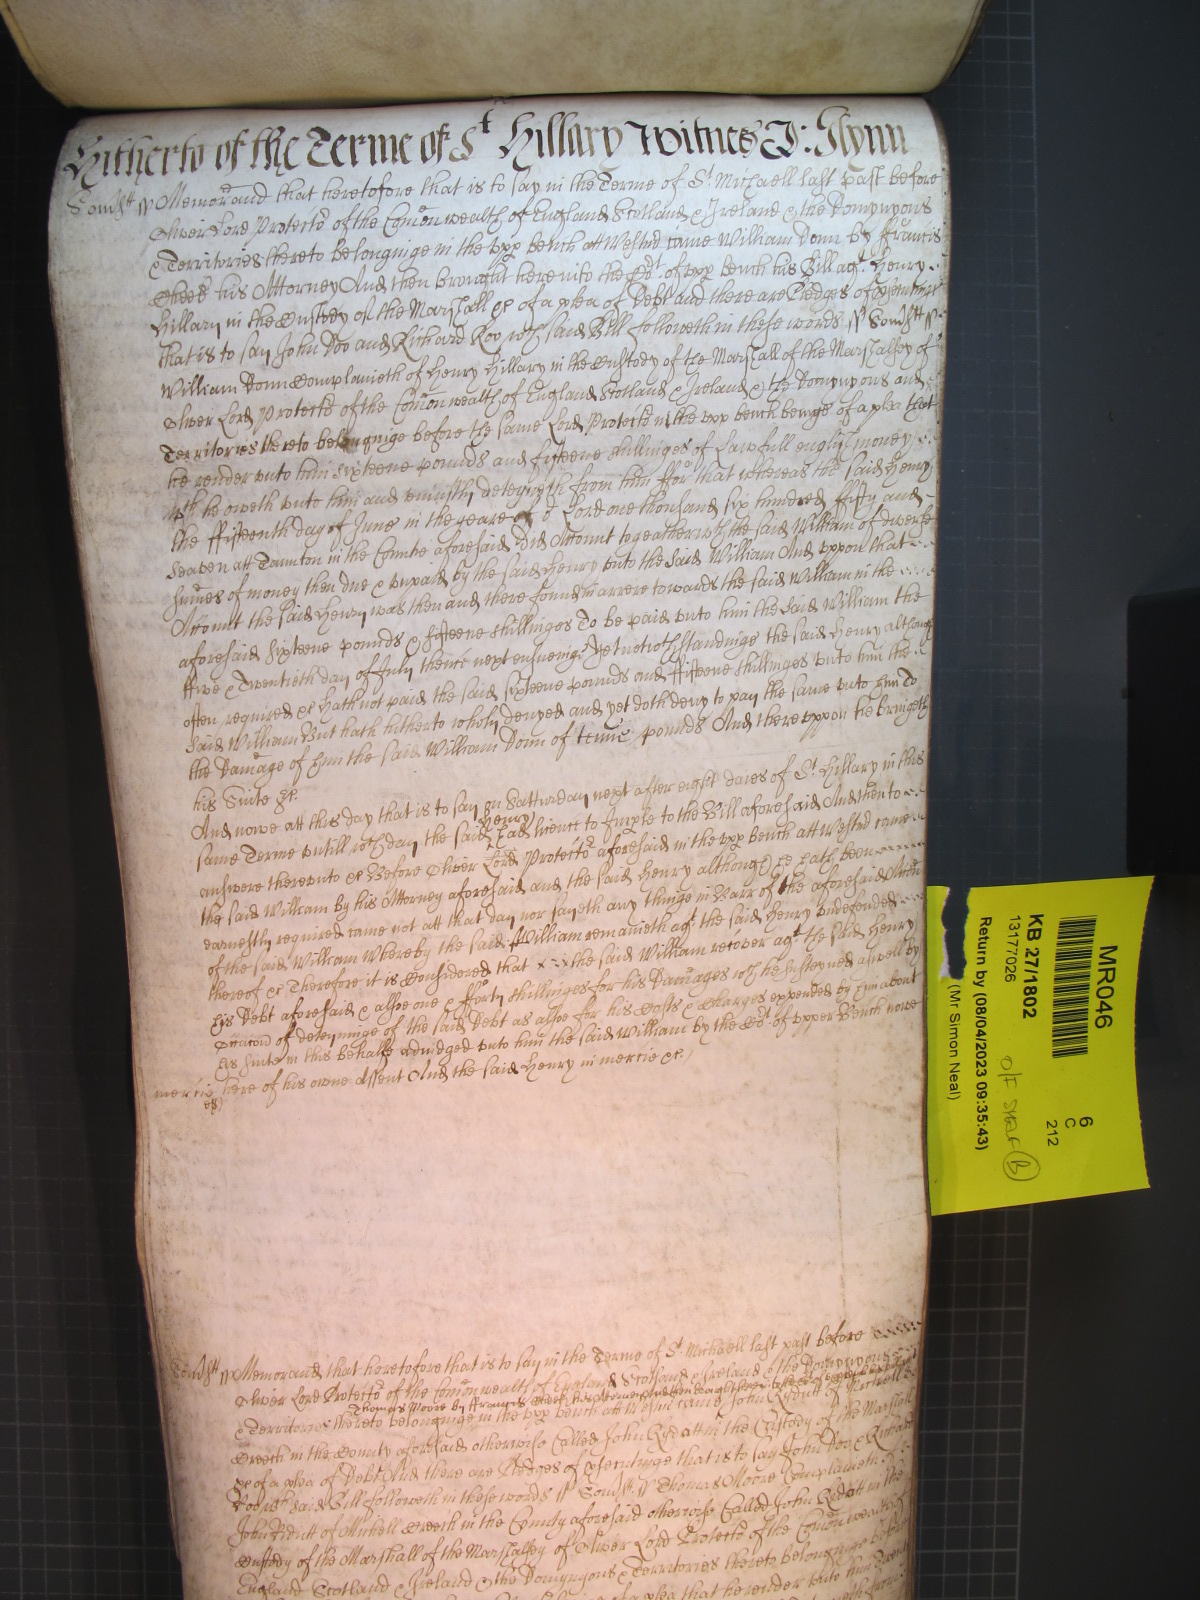 Hitherto of the Terme of St Hillary Witnes J: Glynn
Somsett ss Memorand that heretofore that is to say in the Terme of St. Michaell last past before
Oliver Lord Protector of the Comonwealth of England Scotland & Ireland & the Domynyons
& Territories thereto belonginge in the upp bench att Westmr came William Donn by Francis
Cheeke his Attorney And then brought here into the Cort. of upp bench his Bill agt. Henry
Hillary in the Custody of the Marshall &c of a plea of Debt and there are Pledges of
that is to say John Doo and Richard Roo wch said Bill followeth in these words ss Somsett ss
William Donn Complaineth of Henry Hillary in the Custody of the Marshall of the Marshalsey of
Oliver Lord Protector of the Comonwealth of England Scotland & Ireland & the Domynyons and
Territories thereto belonginge before the same Lord Protector in the upp bench beinge of a plea that
he render unto him sixteene pounds and fifteene shillinges of Lawfull english money
wch he oweth unto him and uniustly deteyneth from him ffor that whereas the said Henry
the ffifteenth day of June in the yeare of or Lord one thousand six hundred ffifty and
seaven att Taunton in the Countie aforesaid did Accompt togeather with the said William of diverse
sumes of money then due & unpaid by the said Henry unto the said William And uppon that
Accompt the said Henry was then and there found in arrere towards the said William in the
aforesaid sixteene pounds & fifteene shillinges To be paid unto him the said William the
ffive & Twentieth day of July thence next ensueinge Yet notwithstandinge the said Henry although
often required &c hath not paid the said sixteene pounds and ffifteene shillinges unto him the
said William But hath hitherto wholy denyed and yet doth deny to pay the same unto him To
the Damage of him the said William Donn of tenne pounds And thereuppon he bringeth
his Suite &c.
And nowe att this day that is to say on Satturday next after eight daies of St. Hillary in this
same Terme untill wch day the said Henry had licence to Imple to the Bill aforesaid And then to
answere thereunto &c Before Oliver Lord Protector aforesaid in the upp bench att Westmr came
the said William by his Attorney aforesaid and the said Henry although he hath been
earnestly required came not att that day nor sayeth any thinge in Barr of the aforesaid Accon
of the said William Whereby the said William remaineth agt. the said Henry undefended
thereof &c Therefore it is Considered that the said William recover agt. the said Henry
his Debt aforesaid & alsoe one & fforty shillinges for his Damages wch he susteyned aswell by
occacion of deteyninge of the said Debt as alsoe for his Costs & Charges expended by him about
his Suite in this behalfe adiudged unto him the said William by the Cort. of upper Bench nowe
mercie here of his owne Assent And the said Henry in mercie &c.
Somsett ss Memorand that heretofore that is to say in the Terme of St. Michaell last past before
Oliver Lord Protector of the Comonwealth of England Scotland & Ireland & the Domynyons
Thomas Moore by Francis Cheeke his Attorney And then brought here into the
& Territories thereto belonginge in the upp bench att Westmr came John Rydatt of Michell
Creech in the County aforesaid otherwise Called John Rydatt in the Custody of the Marshall
&c of a plea of Debt And there are Pledges of that is to say John Doo & Richard
Roo wch said Bill followeth in these words ss Somsett ss Thomas Moore Complaineth
John Rydatt of Michell Creech in the County aforesaid otherwise Called John Rydatt in the
Custody of the Marshall of the Marshalsey of Oliver Lord Protector of the Comonwealth of
England Scotland & Ireland & the Domynyons & Territories thereto belonginge before
of a plea that he render unto him
MR046
6
C
212
KB 27/1802
13177026
O/F SHELF B
Return by (08/04/2023 09:35:43)
(Mr Simon Neal)